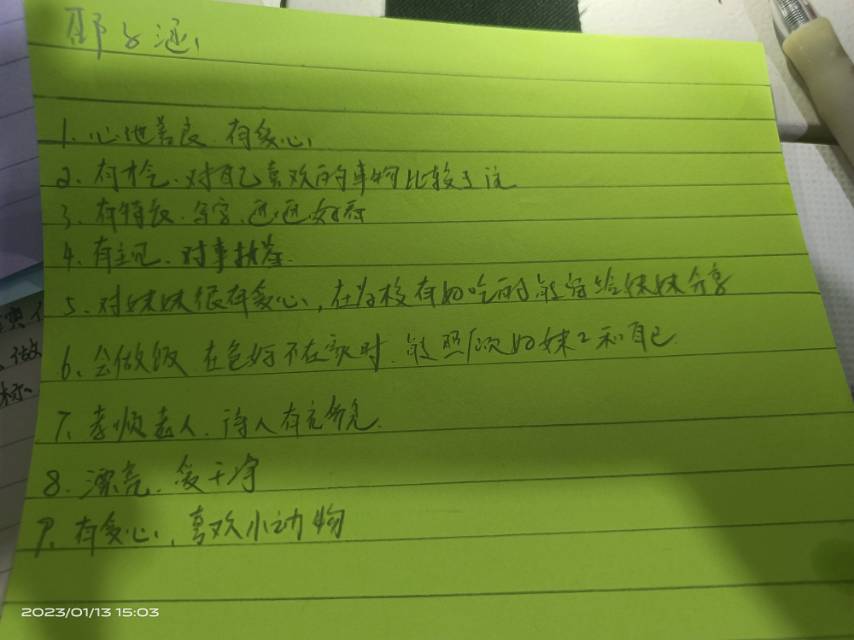 1. 心地善良、有爱心
2. 有才气、对自己喜欢的事物比较专注
3. 有特长、写字、画画好看
4. 有主见、对事执着
5. 对妹妹很有爱心,在学校有好吃的能留给妹妹分享
6. 会做饭 在爸妈不在家时、能照顾好妹妹和自己
7. 孝顺老人、待人有礼貌
8. 漂亮、爱干净
9. 有爱心、喜欢小动物
2023/01/13 15:03